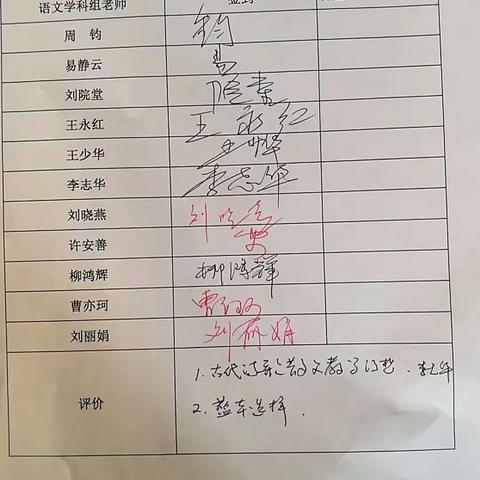 语文学科组老师 签到
周 钧 钧
易静云 易
刘院堂 院堂
王永红 王永红
王少华 王少华
李志华 李志华
刘晓燕 刘晓燕
许安善
柳鸿辉 柳鸿辉
曹亦珂 曹
刘丽娟 刘丽娟
评价
1. 古代诗歌 散文教学
2. 篮车选择.